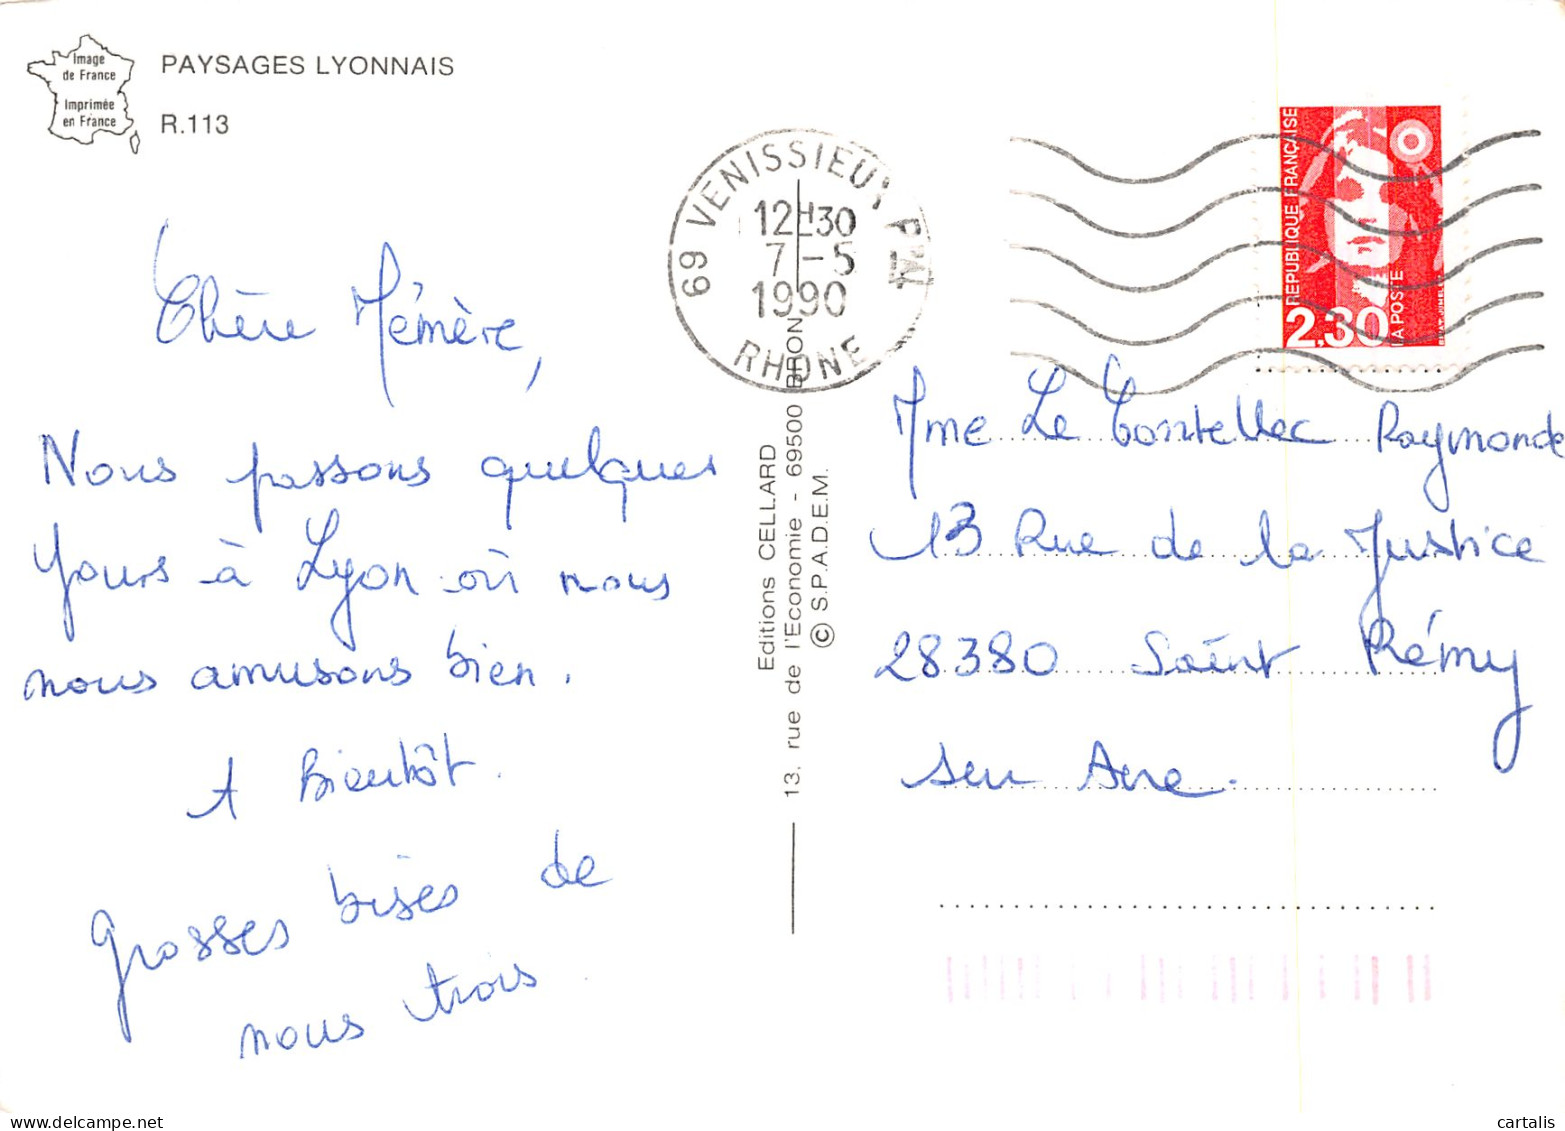 Image
de France
Imprimée
en France
PAYSAGES LYONNAIS
R.113
69 VENISSIEUX
12H30
7-5
1990
RHONE
REPUBLIQUE FRANÇAISE
2,30
LA POSTE
Chère Mémère,
Nous passons quelques
jours à Lyon où nous
nous amusons bien.
A Bientôt.
Grosses bises de
nous trois
Editions CELLARD
13, rue de l'Economie - 69500 BRON
© S.P.A.D.E.M.
Mme Le Raymonde
13 Rue de la Justice
28380 Saint Rémy
sur Avre.
delcampe.net
cartalis